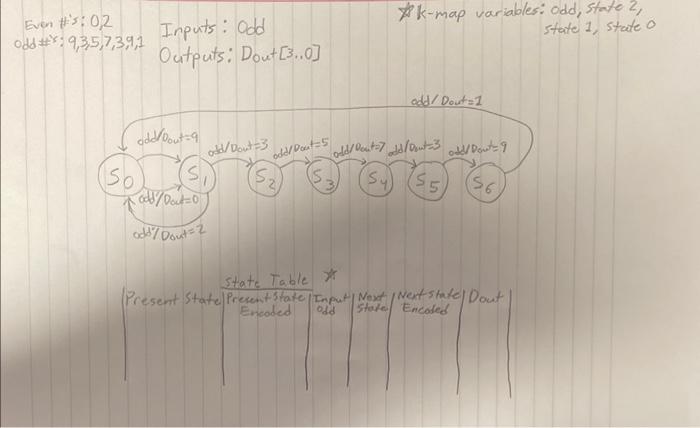 Even #'s: 0,2
Odd #'s: 9,3,5,7,3,9,1
Inputs: Odd
Outputs: Dout[3..0]
☆ K-map variables: odd, state 2,
state 1, state 0
odd/Dout=1
odd/Dout=9
odd/Dout=3
odd/Dout=5
odd/Dout=7
odd/Dout=3
odd/Dout=9
S0
S1
S2
S3
S4
S5
S6
odd'/Dout=0
odd'/Dout=2
State Table ☆
Present State | Present State Encoded | Input Odd | Next State | Next State Encoded | Dout